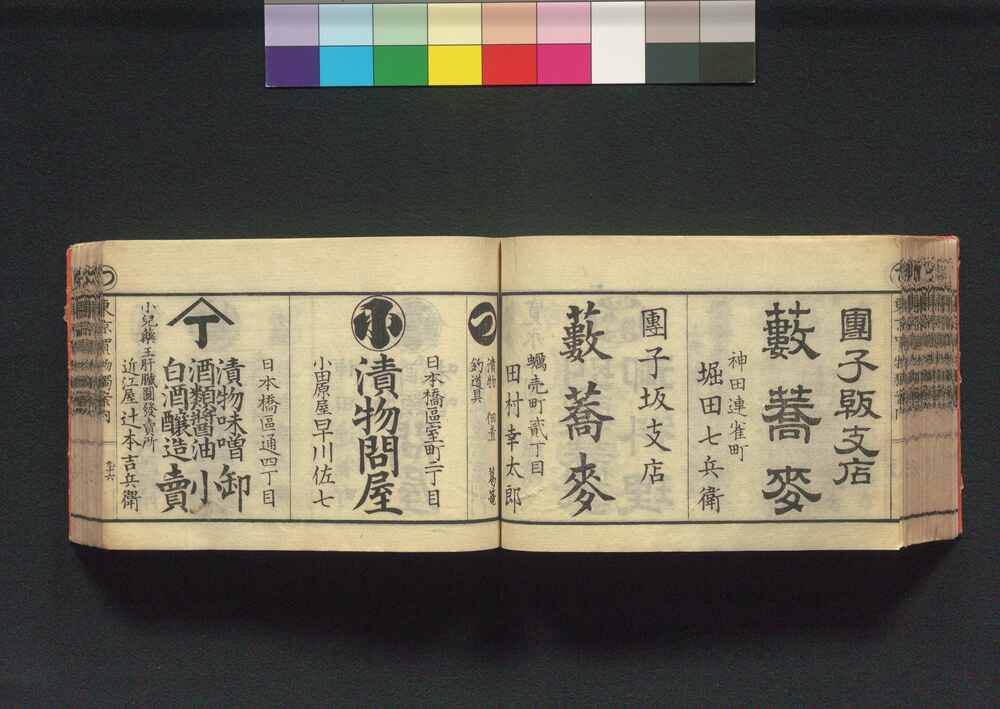 團子坂支店
藪蕎麥
神田連雀町
堀田七兵衛
團子坂支店
藪蕎麥
蠣壳町貳丁目
田村幸太郎
つ
漬物 佃煮
釣道具
日本橋區室町二丁目
小
漬物問屋
小田原屋早川佐七
日本橋區通四丁目
漬物味噌卸
酒類醬油小
白酒醸造賣
丁
小兒藥王肝臓圓發賣所
近江屋辻本吉兵衛
つ
東京買物獨案内